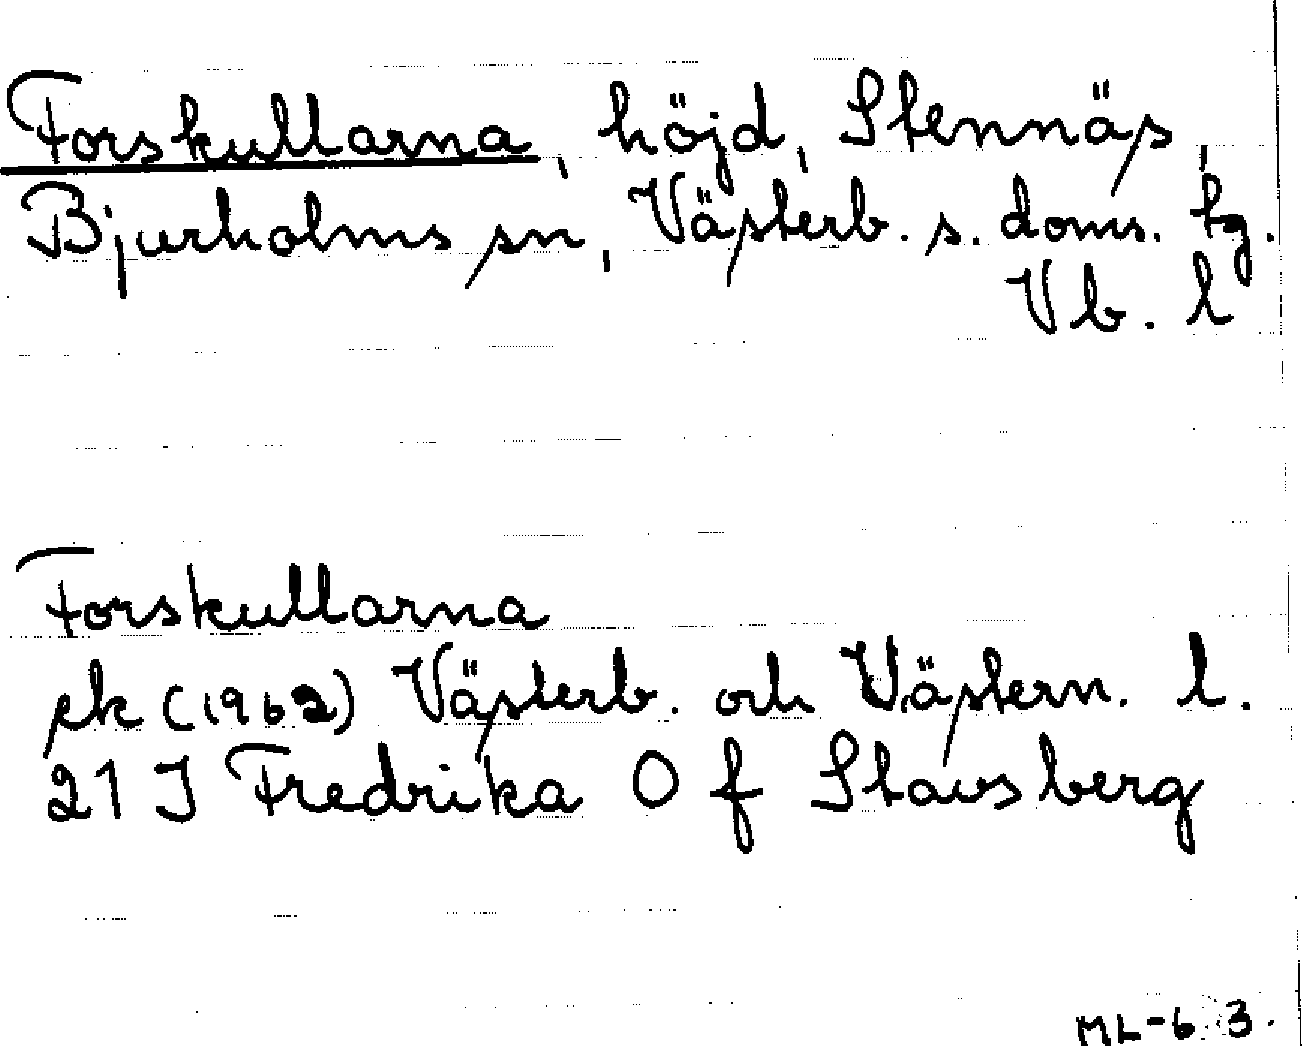 Forskullarna, höjd, Stennäs,
Bjurholms sn, Västerb. s. doms. tg.
Vb. l
Forskullarna
ek (1962) Västerb. och Västern. l.
21 J Fredrika O f Stavsberg
ML-63.